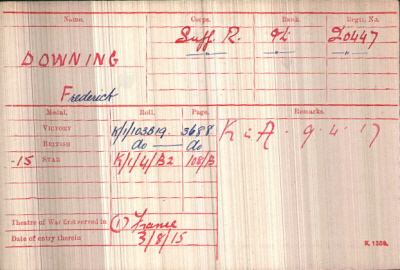 Name. Corps. Rank. Regtl. No.
DOWNING Suff. R. Pte 20447
Frederick
Medal. Roll. Page. Remarks.
VICTORY K/1/103B19. 3688 K in A. 9.4.17
BRITISH do do
-15 STAR K/1/4/B2 108/B
Theatre of War first served in (1) France
Date of entry therein 3/8/15
K. 1380.